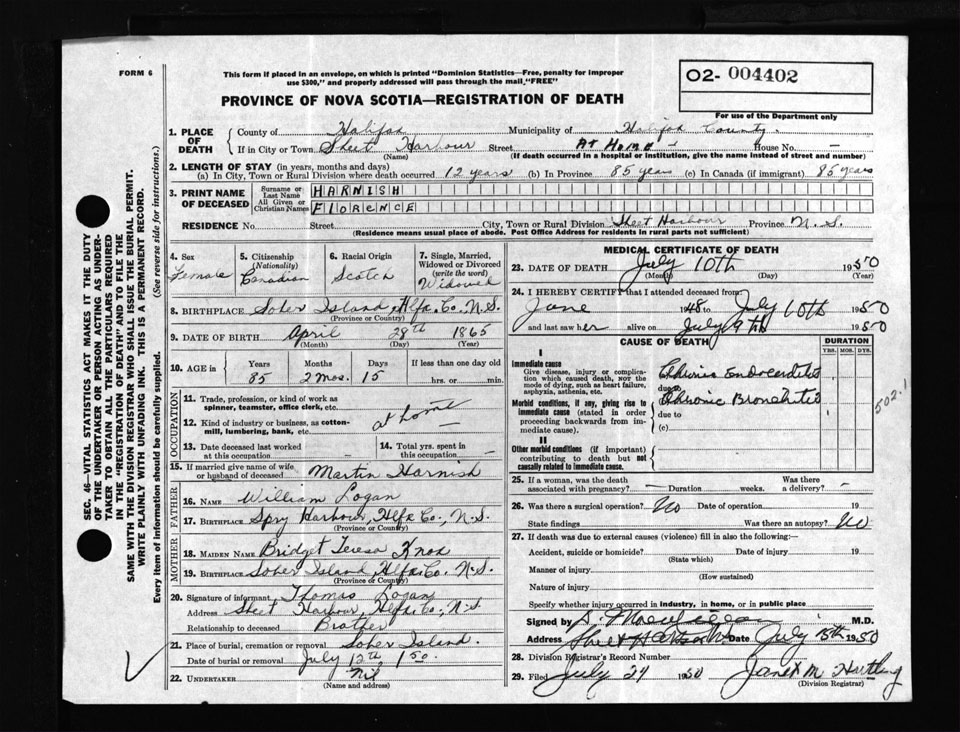 FORM 6
This form if placed in an envelope, on which is printed "Dominion Statistics—Free, penalty for improper
use $300," and properly addressed will pass through the mail "FREE"
O2- 004402
For use of the Department only
PROVINCE OF NOVA SCOTIA—REGISTRATION OF DEATH
1. PLACE OF DEATH
County of Halifax Municipality of Halifax County.
If in City or Town Sheet Harbour Street At Home House No. —
(Name) (If death occurred in a hospital or institution, give the name instead of street and number)
2. LENGTH OF STAY (in years, months and days)
(a) In City, Town or Rural Division where death occurred 12 years (b) In Province 85 years (c) In Canada (if immigrant) 85 years
3. PRINT NAME OF DECEASED
Surname or Last Name HARNISH
All Given or Christian Names FLORENCE
RESIDENCE No. Street City, Town or Rural Division Sheet Harbour Province N. S.
(Residence means usual place of abode. Post Office Address for residents in rural parts not sufficient)
4. Sex Female
5. Citizenship (Nationality) Canadian
6. Racial Origin Scotch
7. Single, Married, Widowed or Divorced (write the word) Widowed
8. BIRTHPLACE Sober Island, Hfa. Co., N.S.
(Province or Country)
9. DATE OF BIRTH April 28th 1865
(Month) (Day) (Year)
10. AGE in Years Months Days If less than one day old
85 2 mos. 15 hrs. or min.
OCCUPATION
11. Trade, profession, or kind of work as spinner, teamster, office clerk, etc.
at home
12. Kind of industry or business, as cotton-mill, lumbering, bank, etc. —
13. Date deceased last worked at this occupation —
14. Total yrs. spent in this occupation —
15. If married give name of wife or husband of deceased Martin Harnish
FATHER
16. NAME William Logan
17. BIRTHPLACE Spry Harbour, Hlfx Co., N.S.
(Province or Country)
MOTHER
18. MAIDEN NAME Bridget Teresa Knox
19. BIRTHPLACE Sober Island, Hlfx. Co. N.S.
(Province or Country)
20. Signature of informant Thomas Logan
Address Sheet Harbour, Hlfx. Co., N.S.
Relationship to deceased Brother
21. Place of burial, cremation or removal Sober Island.
Date of burial or removal July 12th 150
22. UNDERTAKER Nil
(Name and address)
MEDICAL CERTIFICATE OF DEATH
23. DATE OF DEATH July 10th 1950
(Month) (Day) (Year)
24. I HEREBY CERTIFY that I attended deceased from
June 1948 to July 10th 1950
and last saw her alive on July 9th 1950
CAUSE OF DEATH DURATION
YRS. MOS. DYS.
I
Immediate cause
Give disease, injury or complication which caused death, not the mode of dying, such as heart failure, asphyxia, asthenia, etc.
Chronic Endocarditis
due to
Chronic Bronchitis
Morbid conditions, if any, giving rise to immediate cause (stated in order proceeding backwards from immediate cause).
due to
(c)
502.1
II
Other morbid conditions (if important) contributing to death but not causally related to immediate cause.
25. If a woman, was the death associated with pregnancy? — Duration weeks. Was there a delivery? —
26. Was there a surgical operation? No Date of operation 19
State findings Was there an autopsy? No
27. If death was due to external causes (violence) fill in also the following:—
Accident, suicide or homicide? Date of injury 19
(State which)
Manner of injury
(How sustained)
Nature of injury
Specify whether injury occurred in industry, in home, or in public place
Signed by M.D.
Address Sheet Harbour Date July 15th 1950
28. Division Registrar's Record Number
29. Filed July 24 1950 Janet M Hartling
(Division Registrar)
SEC. 46—VITAL STATISTICS ACT MAKES IT THE DUTY
OF THE UNDERTAKER OR PERSON ACTING AS UNDER-
TAKER TO OBTAIN ALL THE PARTICULARS REQUIRED
IN THE "REGISTRATION OF DEATH" AND TO FILE THE
SAME WITH THE DIVISION REGISTRAR WHO SHALL ISSUE THE BURIAL PERMIT.
WRITE PLAINLY WITH UNFADING INK. THIS IS A PERMANENT RECORD.
Every item of information should be carefully supplied. (See reverse side for instructions.)